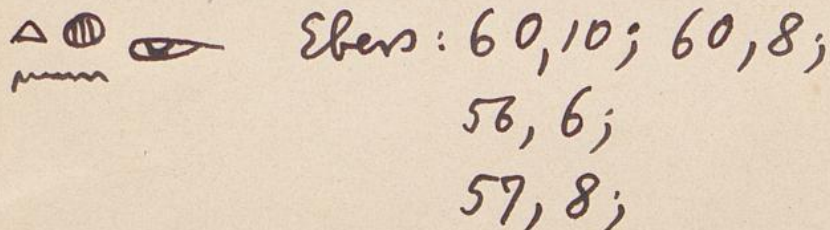 Ebers: 60,10; 60,8;
56, 6;
57, 8;